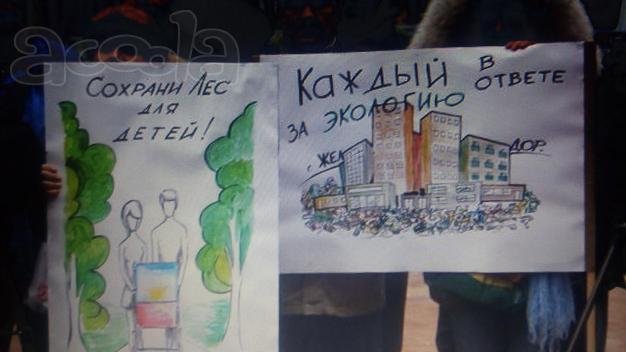 acoola
СОХРАНИ ЛЕС
ДЛЯ
ДЕТЕЙ!
КАЖДЫЙ В
ОТВЕТЕ
ЗА ЭКОЛОГИЮ
г. ЖЕЛ
ДОР.